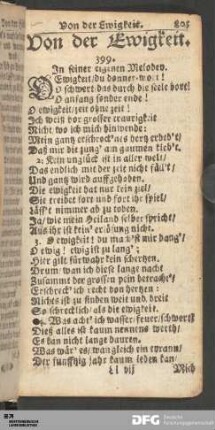 Von der Ewigkeit. 805
Von der Ewigkeit.
399.
In seiner eigenen Melodey.
O Ewigkeit/du donner-wort!
O schwert/das durch die seele bort!
O anfang sonder ende!
O ewigkeit/zeit ohne zeit!
Ich weiß vor grosser traurigkeit
Nicht, wo ich mich hinwende:
Mein gantz erschrock'nes hertz erbeb't/
Daß mir die zung' am gaumen kleb't.
2. Kein unglück ist in aller welt/
Das endlich mit der zeit nicht fäll't/
Und gantz wird auffgehoben.
Die ewigkeit hat nur kein ziel/
Sie treibet fort und fort ihr spiel/
Läss't nimmer ab zu toben.
Ja/ wie mein Heiland selber spricht/
Aus ihr ist kein' erlösung nicht.
3. O ewigkeit! du mach'st mir bang'/
O ewig! ewig ist zu lang';
Hier gilt fürwahr kein schertzen.
Drum/wan ich diese lange nacht
Zusammt der grossen pein betracht'/
Erschreck' ich recht von hertzen:
Nichts ist zu finden weit und breit
So schrecklich/als die ewigkeit.
4. Was acht' ich wasser/feuer/schwert?
Dieß alles ist kaum nennens werth/
Es kan nicht lange dauren.
Was wär' es/wangleich ein tyrann/
Der funfftzig jahr kaum leben kan/
Mich
DFG